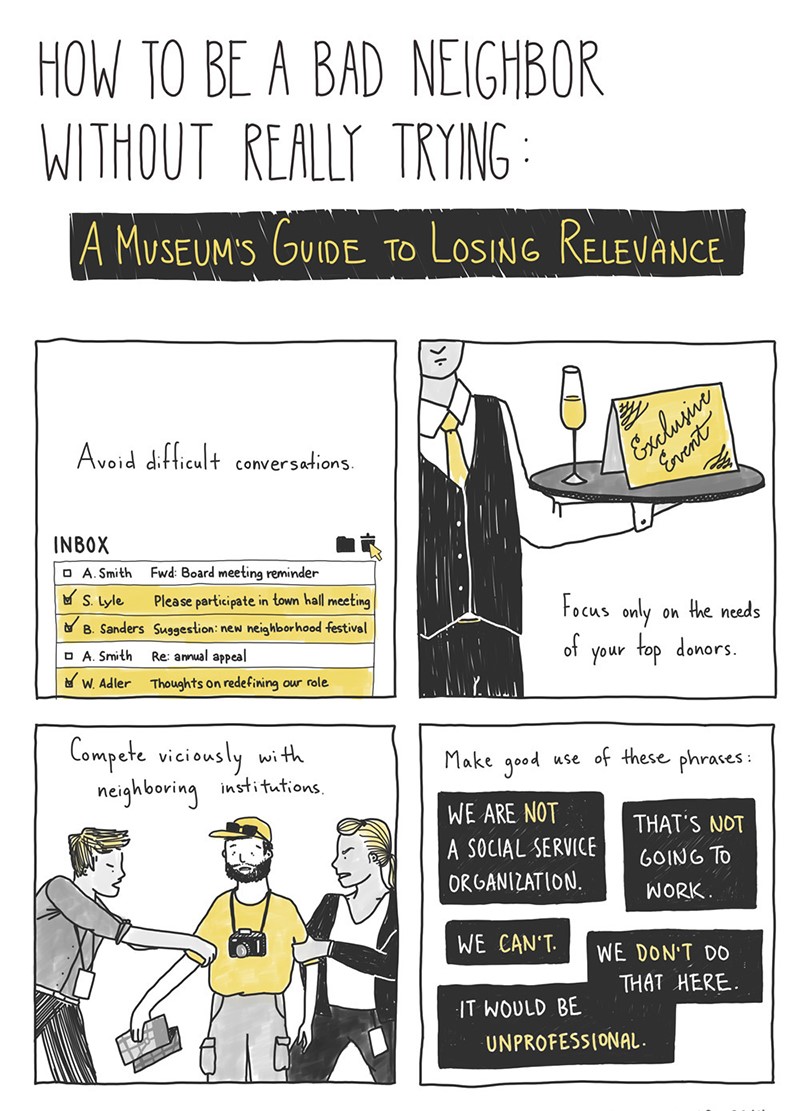 HOW TO BE A BAD NEIGHBOR
WITHOUT REALLY TRYING:
A MUSEUM'S GUIDE TO LOSING RELEVANCE
Avoid difficult conversations.
INBOX
A. Smith Fwd: Board meeting reminder
S. Lyle Please participate in town hall meeting
B. Sanders Suggestion: new neighborhood festival
A. Smith Re: annual appeal
W. Adler Thoughts on redefining our role
Exclusive
Event
Focus only on the needs
of your top donors.
Compete viciously with
neighboring institutions.
Make good use of these phrases:
WE ARE NOT
A SOCIAL SERVICE
ORGANIZATION.
THAT'S NOT
GOING TO
WORK.
WE CAN'T.
WE DON'T DO
THAT HERE.
IT WOULD BE
UNPROFESSIONAL.